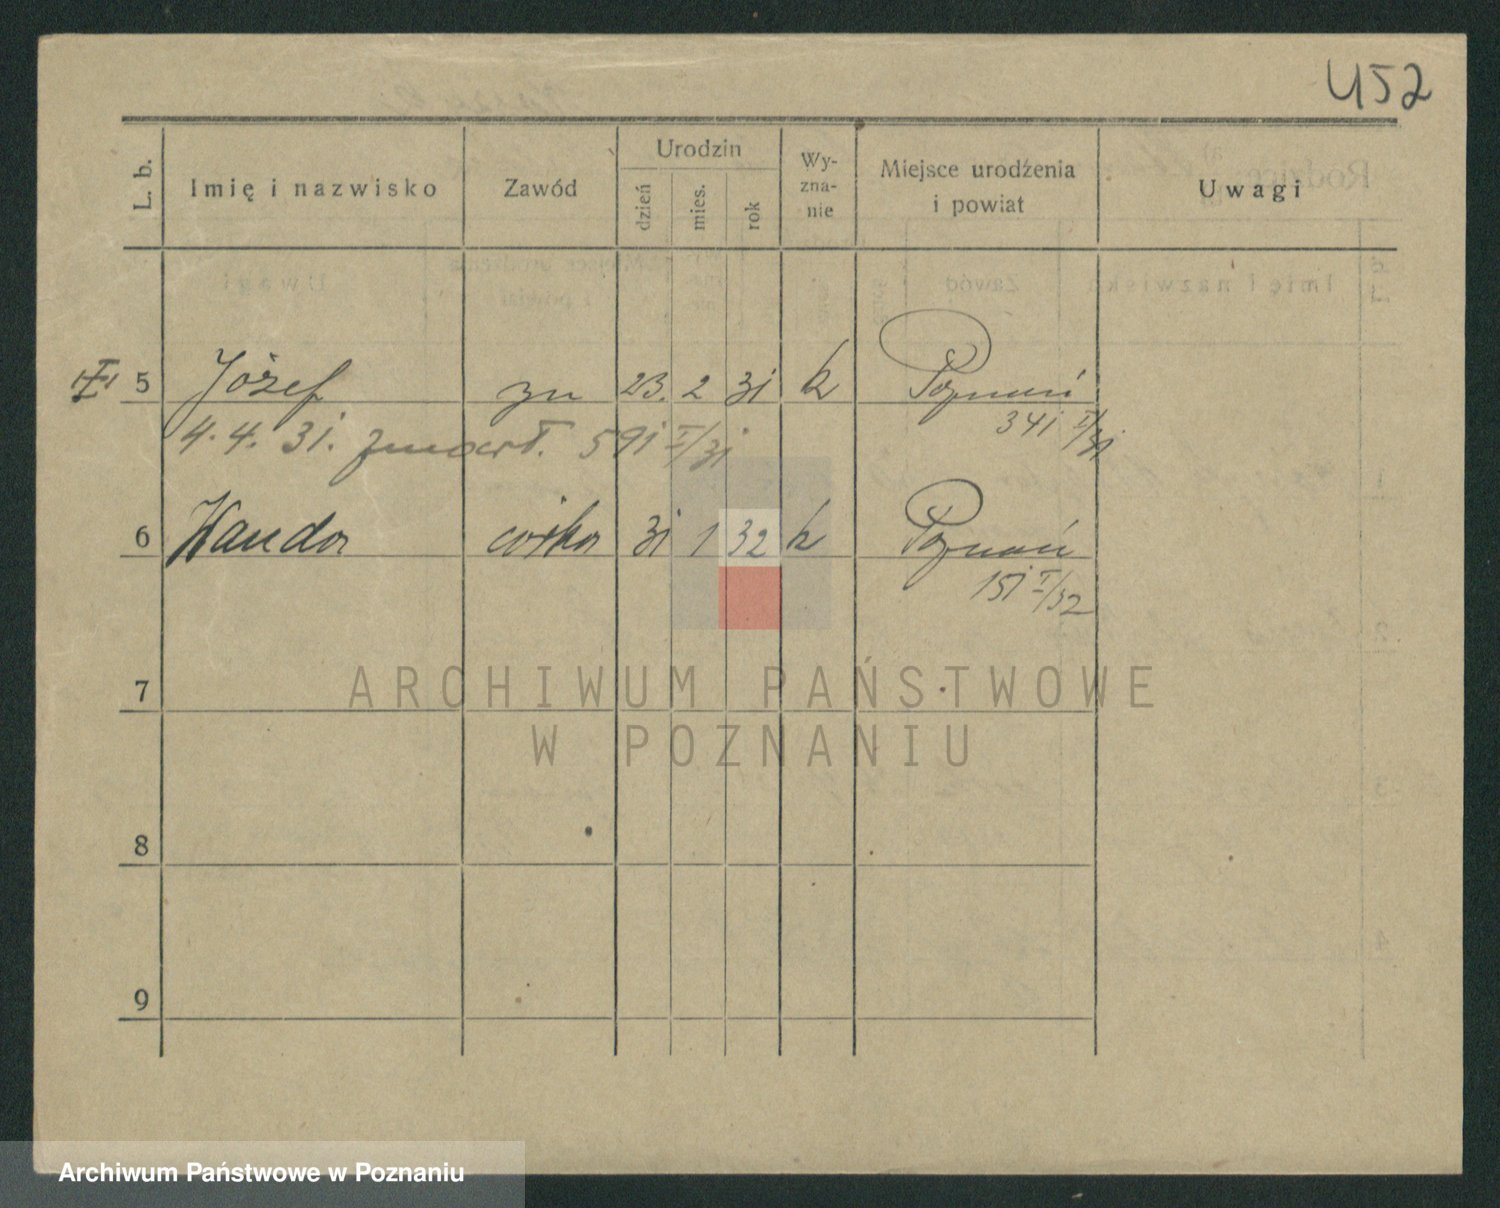 452
L. b.
Imię i nazwisko
Zawód
Urodzin
dzień
mies.
rok
Wy-
zna-
nie
Miejsce urodzenia
i powiat
Uwagi
5 Józef 23. 2 31 k Poznań
341 I/31
4. 4. 31. zmarł. 591 I/31
6 Wanda córka 31 1 32 k Poznań
151 I/32
7
8
9
ARCHIWUM PAŃSTWOWE
W POZNANIU
Archiwum Państwowe w Poznaniu